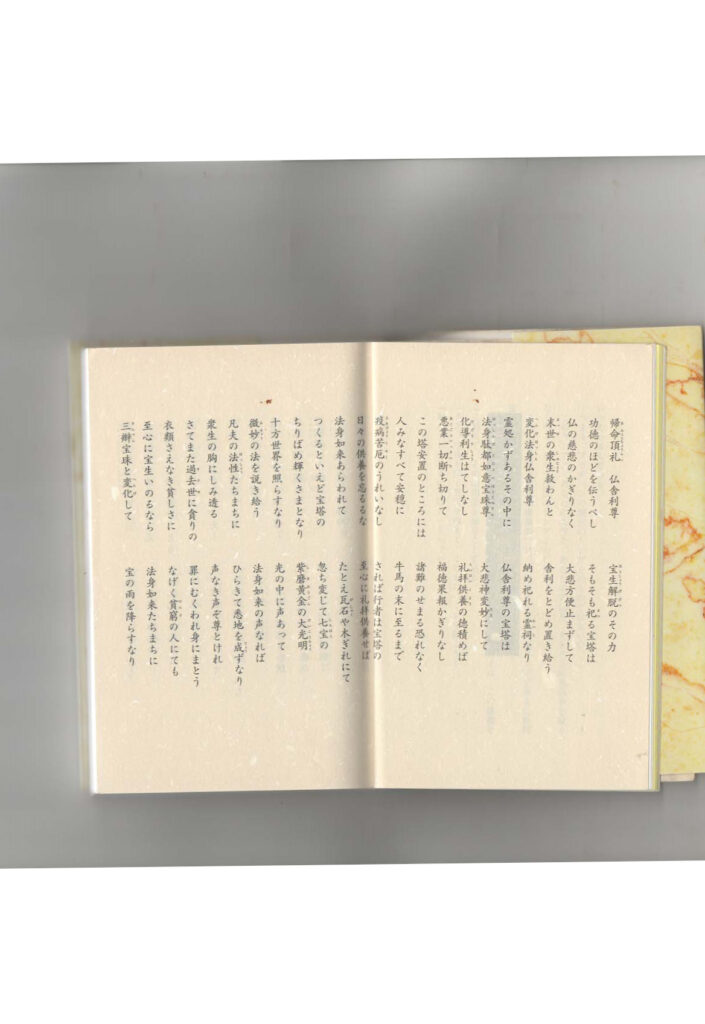 帰命頂礼　仏舎利尊　宝生解脱のその力
功徳のほどを伝うべし　そもそも祀る宝塔は
仏の慈悲のかぎりなく　大悲方便止まずして
末世の衆生救わんと　舎利をとどめ置き給う
変化法身仏舎利尊　納め祀れる霊祠なり
霊処かずあるその中に　仏舎利尊の宝塔は
法身駄都如意宝珠尊　大悲神変妙にして
化導利生はてしなし　礼拝供養の徳積めば
悪業一切断ち切りて　福徳果報かぎりなし
この塔安置のところには　諸難のせまる恐れなく
人みなすべて安穏に　牛馬の末に至るまで
疫病苦厄のうれいなし　されば行者は宝塔の
日々の供養を怠るな　至心に礼拝供養せば
法身如来あらわれて　たとえ瓦石や木ぎれにて
つくるといえど宝塔の　忽ち変じて七宝の
ちりばめ輝くさまとなり　紫磨黄金の大光明
十方世界を照らすなり　光の中に声あって
微妙の法を説き給う　法身如来の声なれば
凡夫の法性たちまちに　ひらきて悉地を成ずなり
衆生の胸にしみ透る　声なき声ぞ尊とけれ
さてまた過去世に貪りの　罪にむくわれ身にまとう
衣類さえなき貧しさに　なげく貧窮の人にても
至心に宝生いのるなら　法身如来たちまちに
三辧宝珠と変化して　宝の雨を降らすなり